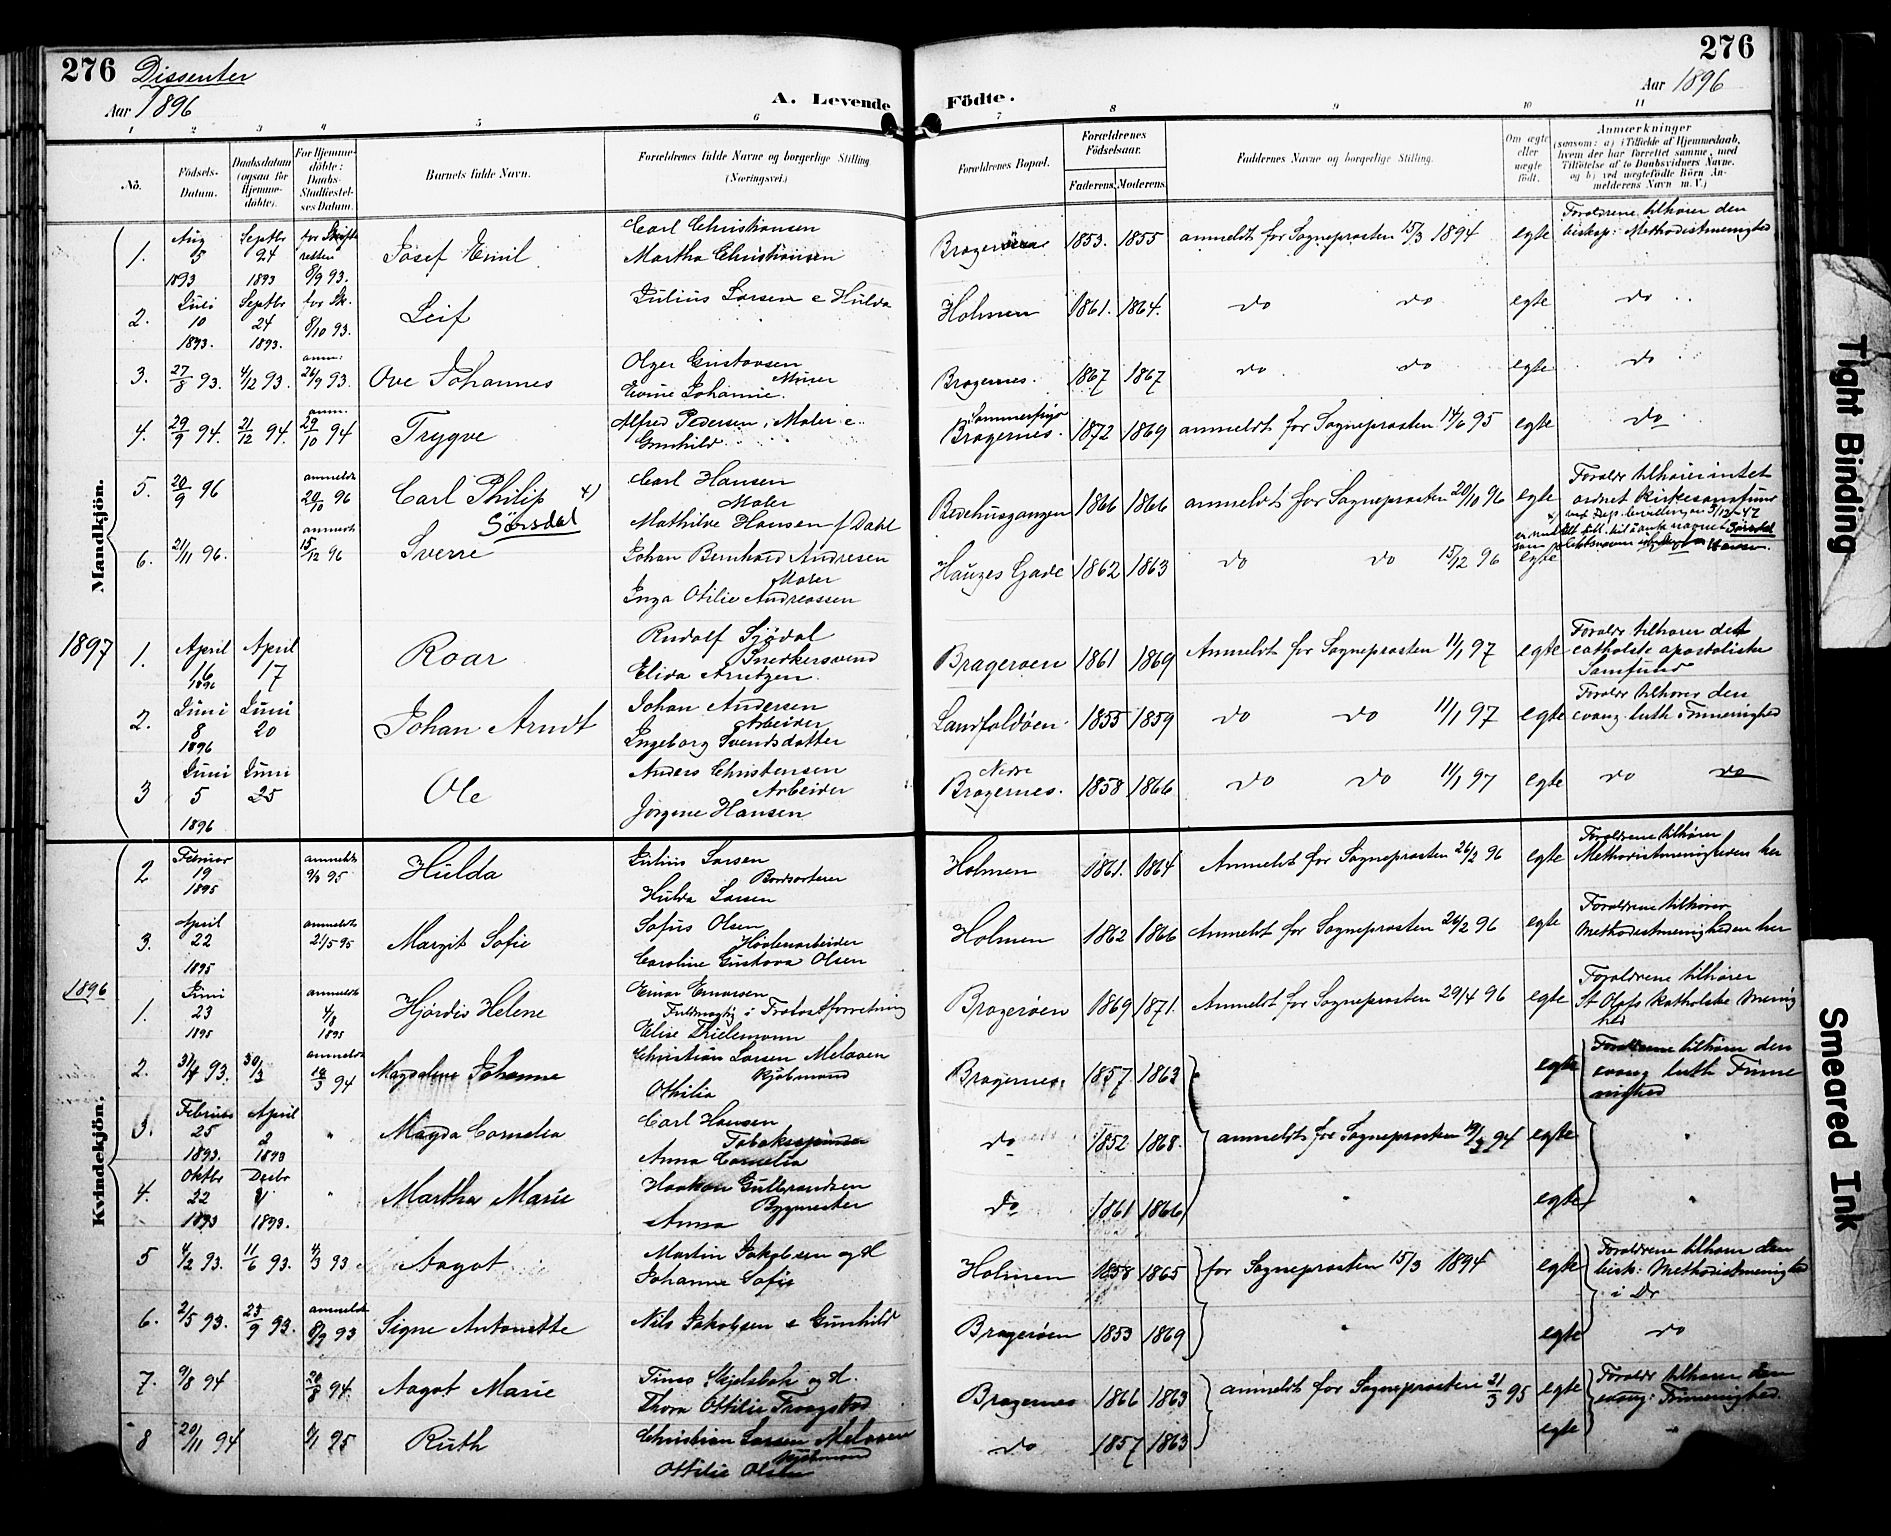 276 Dissenter
Aar 1896
A. Levende Födte.
276
Aar 1896
1 2 3 4 5 6 7 8 9 10 11
No.
Födsels-Datum.
Daabsdatum (ogsaa for Hjemmedöbte).
For Hjemmedöbte: Daabs-Stadfæstelses Datum.
Barnets fulde Navn.
Forældrenes fulde Navne og borgerlige Stilling (Næringsvei.)
Forældrenes Bopæl.
Forældrenes Födselsaar.
Faderens. Moderens.
Faddernes Navne og borgerlige Stilling.
Om ægte eller uægte födt.
Anmærkninger (saasom: a) i Tilfælde af Hjemmedaab, hvem der har forrettet samme, med Tilföielse af to Daabsvidners Navne, og b) ved uægtefödte Börn Anmelderens Navn m. V.)
Mandkjön.
1. Aug 5 1893 Septbr 24 1893 8/9 93. Josef Emil Carl Christiansen Martha Christiansen Brageröen 1853. 1855 anmeldt for Sogneprosten 15/3 1894 egte Foreldrene tilhører den biskop: Methodistmenighed
2. Juli 10 1893. Septbr 24 1893. 8/10 93. Leif Julius Larsen e Hulda Holmen 1861. 1864. do do egte do
3. 27/8 93. 4/12 93. anm: 26/9 93. Ove Johannes Olger Gustavsen Murer Johanne. Bragernes. 1867 1867 do do egte do
4. 29/9 94. 21/12 94. anm. 29/10 94 Trygve Alfred Pedersen, Maler e Gunhild Bragernes. 1872 1869 anmeldt for Sogneprosten 14/6 95 egte do
5. 20/9 96 anmeldt 20/10 96 Carl Philip x) Sørsdal Carl Hansen Maler Mathilde Hansen f Dahl Bedehusgangen 1866 1866 anmeldt for Sogneprosten 20/10 96 egte Foreldr tilhører intet ordnet Kirkesamfund
6. 21/11 96. anmeldt 15/12 96 Sverre Johan Bernhard Andresen Maler Inga Otilie Andreassen Hauges Gade 1862 1863 do do 15/12 96 egte
1897 1. April 16 1896 April 17 Roar Rudolf Sjödal Snedkersvend Elida Arntzen. Brageröen 1861 1869 Anmeldt for Sogneprosten 11/1 97 egte Foreldr tilhører det catholske apostoliske Samfund
2. Juni 8 1896 Juni 20 Johan Arndt Johan Andersen Arbeider Ingeborg Svendsdatter Landfaldöen. 1855 1859 do do 11/1 97 egte Foreldr tilhører den evang. luth Frimenighed
3 Juni 5 1896 Juni 25 Ole Anders Christensen Arbeider Jörgine Hansen Nedre Bragernes. 1858 1866 do do 11/1 97 egte do do
Kvindekjön.
2 Februar 19 1895 anmeldt 95 Hulda Julius Larsen Hulda Larsen Holmen 1861. 1864 Anmeldt for Sogneprosten 26/2 96 egte Foreldrene tilhører Methodistmenigheden her
3. April 22 1895 anmeldt 21/5 95 Margit Sofie Sofus Olsen Høvlerarbeider Caroline Gustava Olsen Holmen 1862 1866 Anmeldt for Sogneprosten 26/2 96 egte Foreldrene tilhører Methodistmenigheden her
1896 1. Juni 23 1895 anmeldt 4/8 1895 Hjørdis Helene Einar Einarsen Fuldmægtig i Elise Thielemann Brageröen 1869 1871. Anmeldt for Sogneprosten 29/4 96 egte Foreldrene tilhører St Olafs Katholske Menighed
2. 93. 30/3 anmeldt 94 Magdalene Johanne Christian Larsen Melaaen Kjøbmand Othilia Bragernes. 1857 1863 egte Foreldrene tilhører den evang luth Frimenighed
3. Februar 25 1893. April 2 1893 " Magda Cornelia Carl Hansen Tobaksspinder Anna Cornelia do 1852 1868. anmeldt for Sogneprosten 94 egte "
4. Oktbr 22 1893 Decbr 1893. " Martha Marie Haakon Gulbrandsen Bygmester Anna do 1861 1866 " egte "
5 4/2 93. 11/6 93. 93 Aagot Martin Jakobsen og H Johanne Sofie Holmen 1858 1865 for Sogneprosten 15/3 1894 egte Foreldrene tilhører den bisk: Methodistmenighed i Dr
6. 2/5 93. 23/9 93. anmeldt 8/9 93 Signe Antonette Nils Jakobsen e Gunhild Brageröen 1853 1869 " egte do
7. 9/8 94 20/8 94. Aagot Marie Skjelsbæk og H. Thora Ottilie Bragernes 1866 1863 anmeldt for Sogneprosten 21/3 95 egte Foreldr tilhører den evang: Frimenighed.
8 20/11 94 95 Ruth Christian Larsen Melaaen Kjøbmand Ottilie Olsen do 1857 1863 egte "
Tight Binding
Smeared Ink